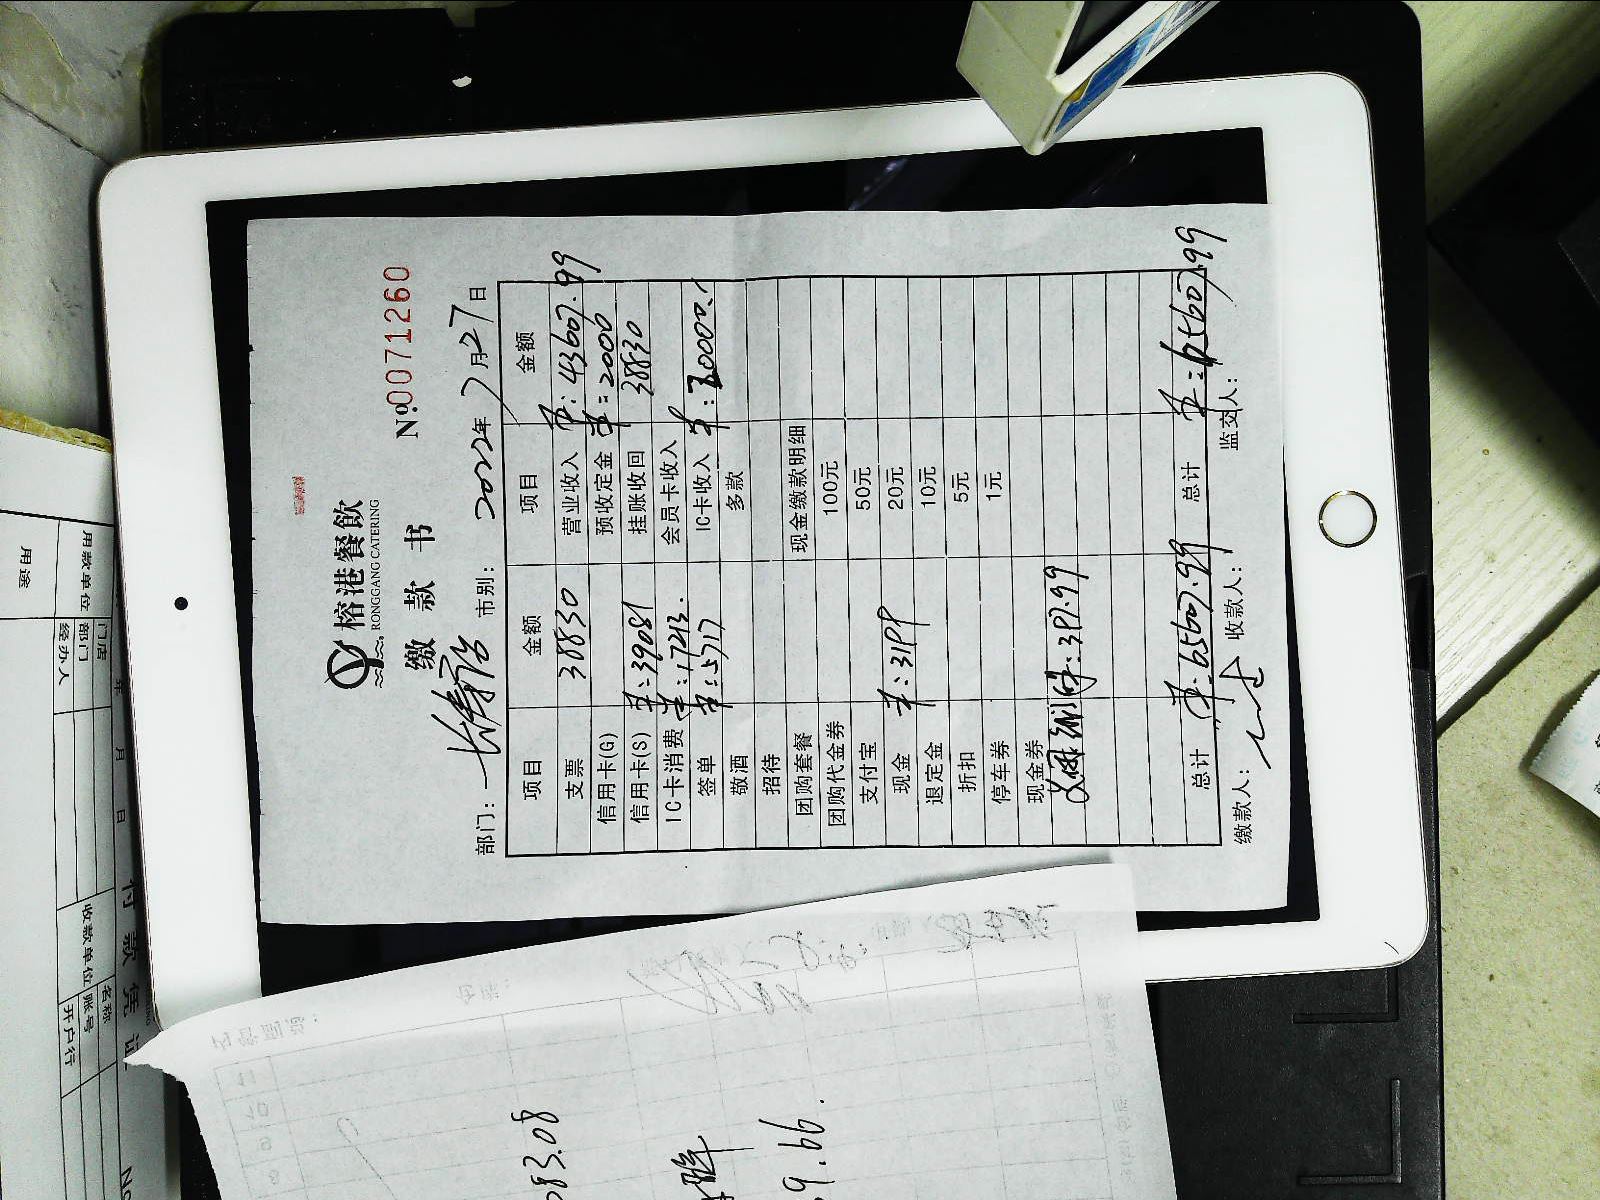 榕港餐飲
RONGGANG CATERING
缴 款 书
№:0071260
部门: 市别: 2022年7月27日
项目 金额 项目 金额
支票 38830 营业收入 单:43607.99
信用卡(G) 预收定金 单:2000
信用卡(S) 单:39081 挂账收回 38830
IC卡消费 单:17213. 会员卡收入
签单 单:5717 IC卡收入 单:20000.
敬酒 多款
招待
团购套餐 现金缴款明细
团购代金券 100元
支付宝 50元
现金 单:3199 20元
退定金 10元
折扣 5元
停车券 1元
现金券
单:397.99
总计 单:65607.99 总计 单:65607.99
缴款人: 收款人: 监交人:
用途
用款单位 门店
部门
经办人
年 月 日
付 款 凭 证
收款单位 名称
账号
开户行
No
083.08
9.66.